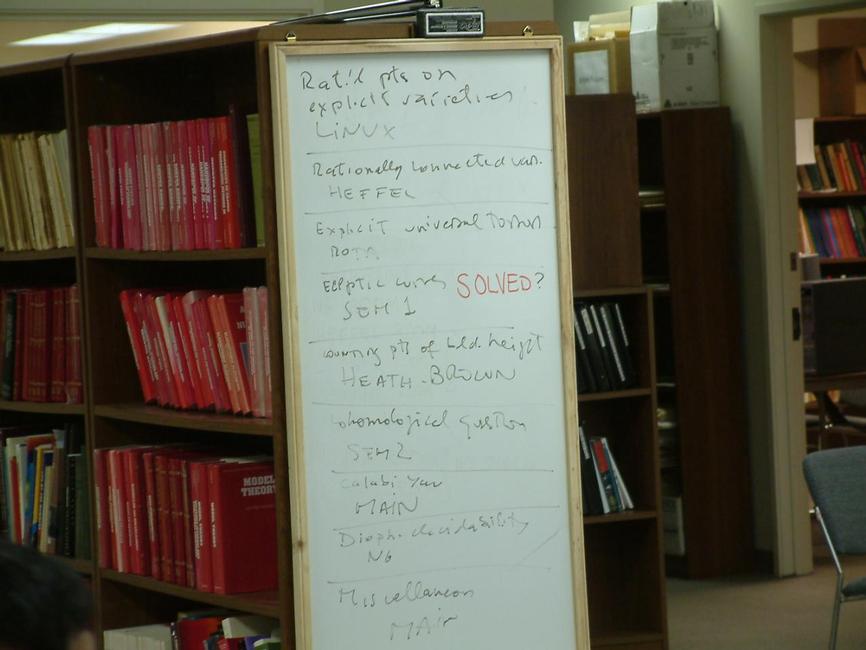 Rat'l pts on
explicit varieties
LINUX
Rationally connected var.
HEFFEL
Explicit universal torsors
ROTA
Elliptic curves SOLVED?
SEM 1
counting pts of bdd. height
HEATH-BROWN
Cohomological question
SEM 2
Calabi Yau
MAIN
Dioph. decidability
N6
Miscellaneous
MAIN
MODEL
THEORY